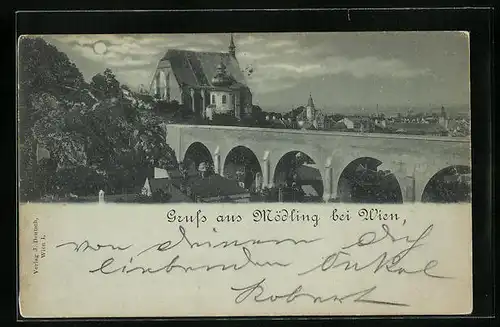 Gruss aus Mödling bei Wien,
von deinem dich
liebenden Onkel
Robert
Verlag J. Deutsch,
Wien I.